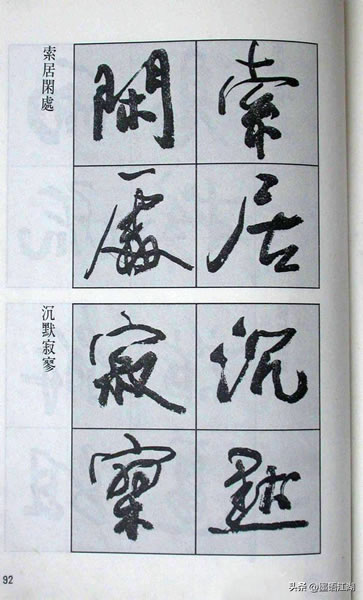 索居
閑處
索居閑處
沉默
寂寥
沉默寂寥
92
头条 @墨语江湖